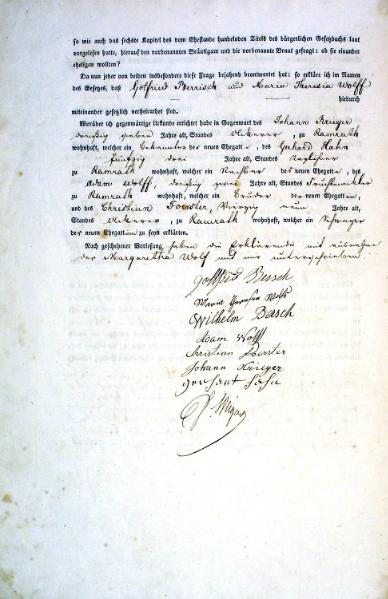 so wie auch das sechste Kapitel des vom Ehestande handelnden Titels des bürgerlichen Gesetzbuchs laut
vorgelesen hatte, hierauf den vorbenannten Bräutigam und die vorbenannte Braut gefragt: ob sie einander
ehelichen wollten?
Da nun jeder von beiden insbesondere diese Frage bejahend beantwortet hat: so erkläre ich im Namen
des Gesetzes, daß Gotfried Bersch und Maria Theresia Wolff
hiedurch
miteinander gesetzlich verheirathet sind.
Worüber ich gegenwärtige Urkunde errichtet habe in Gegenwart des Johann Krüger
dreißig sieben Jahre alt, Standes Ackerer, zu Ramrath
wohnhaft, welcher ein Bekannter des neuen Ehegatten, des Gerhard Hahn
fünfzig drei Jahre alt, Standes
zu Ramrath wohnhaft, welcher ein Nachbar des neuen Ehegatten, des
Adam Wolff, dreißig Jahre alt, Standes
zu Ramrath wohnhaft, welcher ein Bruder der neuen Ehegattin,
und des Christian Foerster, vierzig neun Jahre alt,
Standes Ackerer, zu Ramrath wohnhaft, welcher ein Schwager
des neuen Ehegatten zu seyn erklärten.
Nach geschehener Vorlesung haben die Erklärenden mit
der Margaretha Wolf und mir unterschrieben.
Gottfried Bersch
Maria Theresia Wolff
Wilhelm
Adam Wolff
Christian Foerster
Johann Krüger